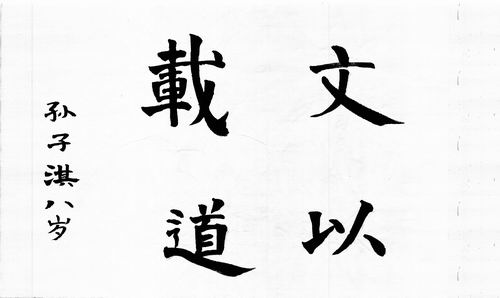 文以
載道
孙子淇八岁